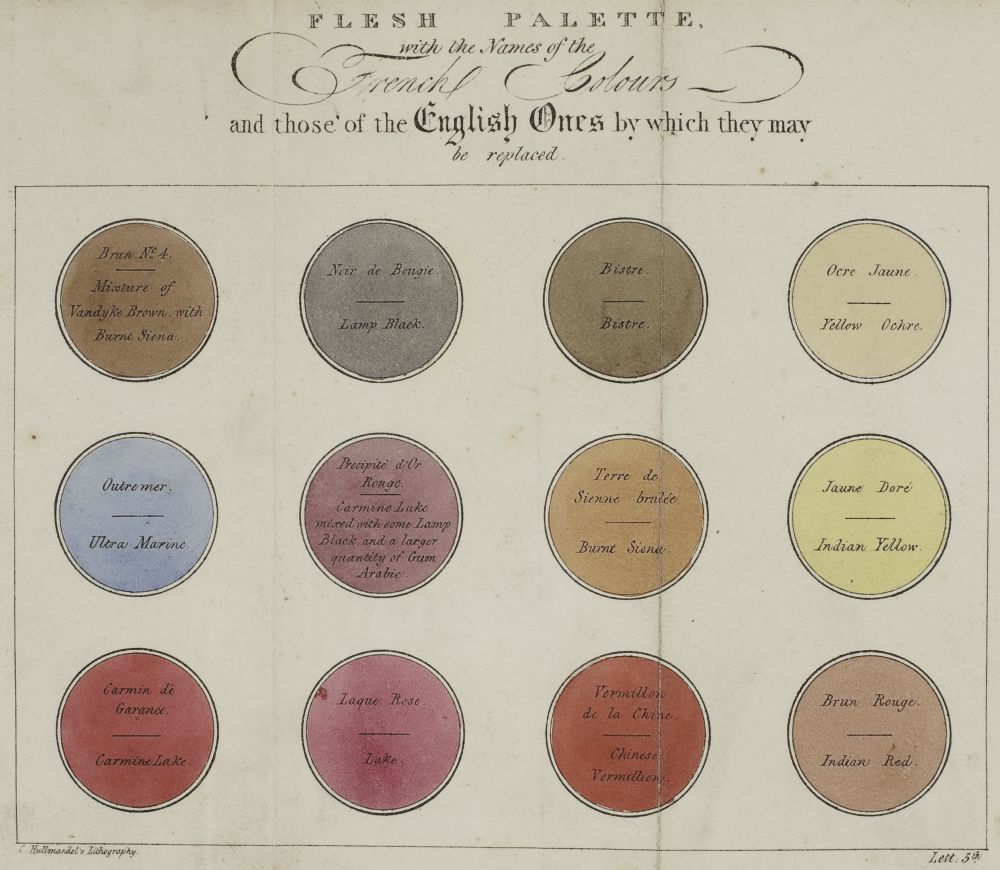 FLESH PALETTE,
with the Names of the
French Colours
and those of the English Ones by which they may
be replaced.
Brun No. 4.
Mixture of
Vandyke Brown with
Burnt Siena.
Noir de Bougie.
Lamp Black.
Bistre.
Bistre.
Ocre Jaune.
Yellow Ochre.
Outremer.
Ultra Marine.
Precipité d'Or
Rouge.
Carmine Lake
mixed with some Lamp
Black and a larger
quantity of Gum
Arabic.
Terre de
Sienne brulée
Burnt Siena.
Jaune Doré
Indian Yellow.
Carmin de
Garance.
Carmine Lake
Laque Rose.
Lake.
Vermillon
de la Chine.
Chinese
Vermillion.
Brun Rouge.
Indian Red.
C. Hullmandel's Lithography.
Lett. 5th